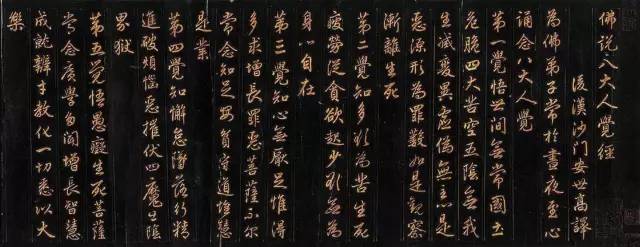 佛說八大人覺經
後漢沙門安世高譯
為佛弟子常於晝夜至心
誦念八大人覺
第一覺悟世間無常國土
危脆四大苦空五陰無我
生滅變異虛偽無主心是
惡源形為罪藪如是觀察
漸離生死
第二覺知多欲為苦生死
疲勞從貪欲起少欲無為
身心自在
第三覺知心無厭足惟得
多求增長罪惡菩薩不尔
常念知足安貧守道惟慧
是業
第四覺知懈怠墜落行精
進破煩惱惡摧伏四魔出陰
界獄
第五覺悟愚癡生死菩薩
常念廣學多聞增長智慧
成就辯才教化一切悉以大
樂